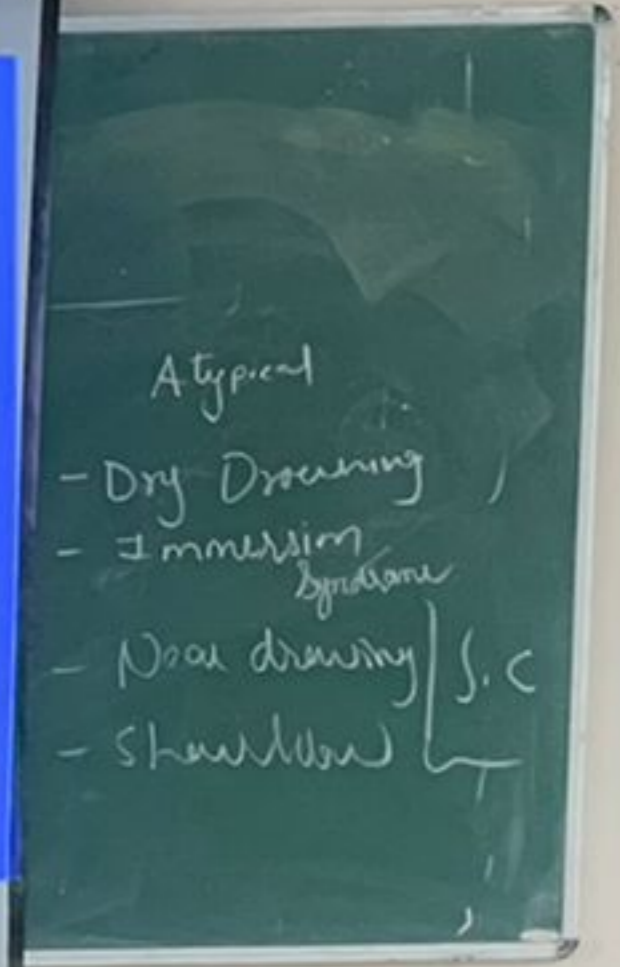 Atypical
- Dry Drowning
- Immersion
Syndrome
- Near drowing
S.C